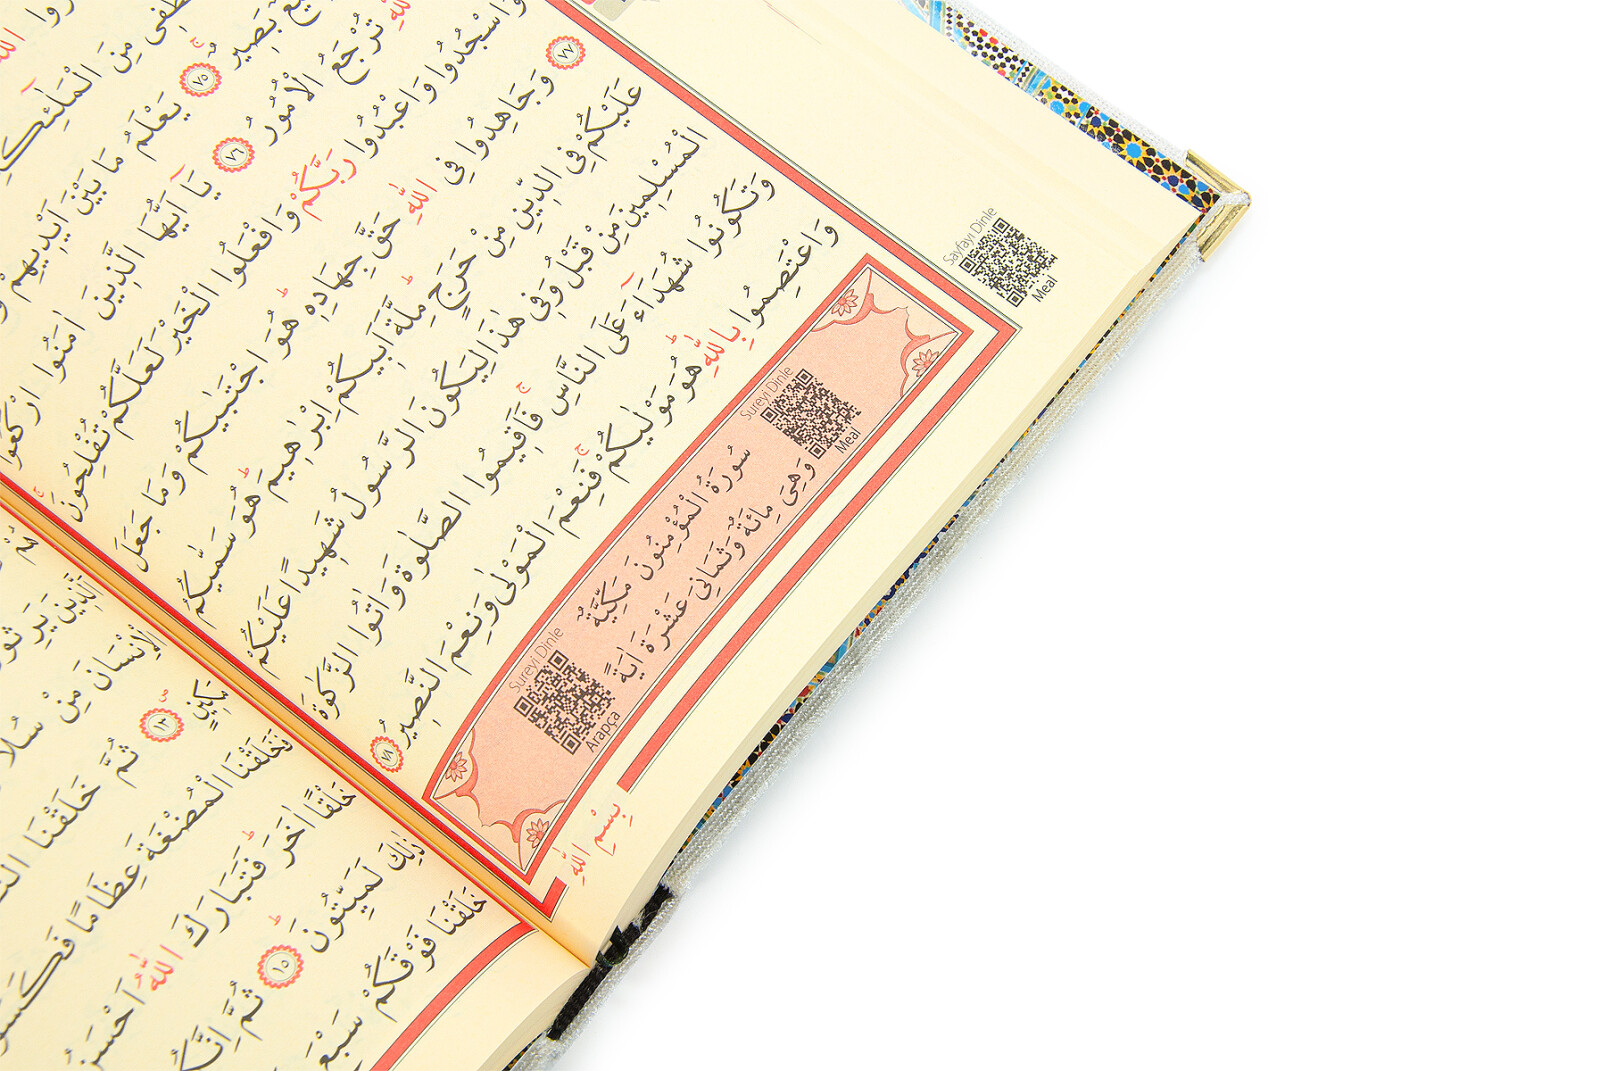 مِنَ الْمَلٰٓئِكَ
بَصِيرٌ ﴿٧٥﴾ يَعْلَمُ مَا بَيْنَ اَيْدِيهِمْ
اللّٰهِ تُرْجَعُ الْاُمُورُ ﴿٧٦﴾ يَٓا اَيُّهَا الَّذِينَ اٰمَنُوا ارْكَعُوا
وَاسْجُدُوا وَاعْبُدُوا رَبَّكُمْ وَافْعَلُوا الْخَيْرَ لَعَلَّكُمْ تُفْلِحُونَ
﴿٧٧﴾ وَجَاهِدُوا فِى اللّٰهِ حَقَّ جِهَادِهٖ هُوَ اجْتَبٰيكُمْ وَمَا جَعَلَ
عَلَيْكُمْ فِى الدِّينِ مِنْ حَرَجٍ مِلَّةَ اَبِيكُمْ اِبْرٰهِيمَ هُوَ سَمّٰيكُمُ
الْمُسْلِمِينَ مِنْ قَبْلُ وَفِى هٰذَا لِيَكُونَ الرَّسُولُ شَهِيدًا عَلَيْكُمْ
وَتَكُونُوا شُهَدَٓاءَ عَلَى النَّاسِ فَاَقِيمُوا الصَّلٰوةَ وَاٰتُوا الزَّكٰوةَ
وَاعْتَصِمُوا بِاللّٰهِ هُوَ مَوْلٰيكُمْ فَنِعْمَ الْمَوْلٰى وَنِعْمَ النَّصِيرُ ﴿٧٨﴾
Sayfayı Dinle
Meal
Sureyi Dinle
Meal
سُورَةُ الْمُؤْمِنُونَ مَكِّيَّةٌ
وَهِىَ مِائَةٌ وَثَمَانِىَ عَشْرَةَ اٰيَةً
Sureyi Dinle
Arapça
بِسْمِ اللّٰهِ
الْاِنْسَانَ مِنْ سُلَا
مَكِينٍ ﴿١٣﴾ ثُمَّ خَلَقْنَا
فَخَلَقْنَا الْمُضْغَةَ عِظَامًا فَكَسَوْ
خَلْقًا اٰخَرَ فَتَبَارَكَ اللّٰهُ اَحْسَنُ
ذٰلِكَ لَمَيِّتُونَ ﴿١٥﴾ ثُمَّ اِنَّكُ
خَلَقْنَا فَوْقَكُمْ سَبْعَ